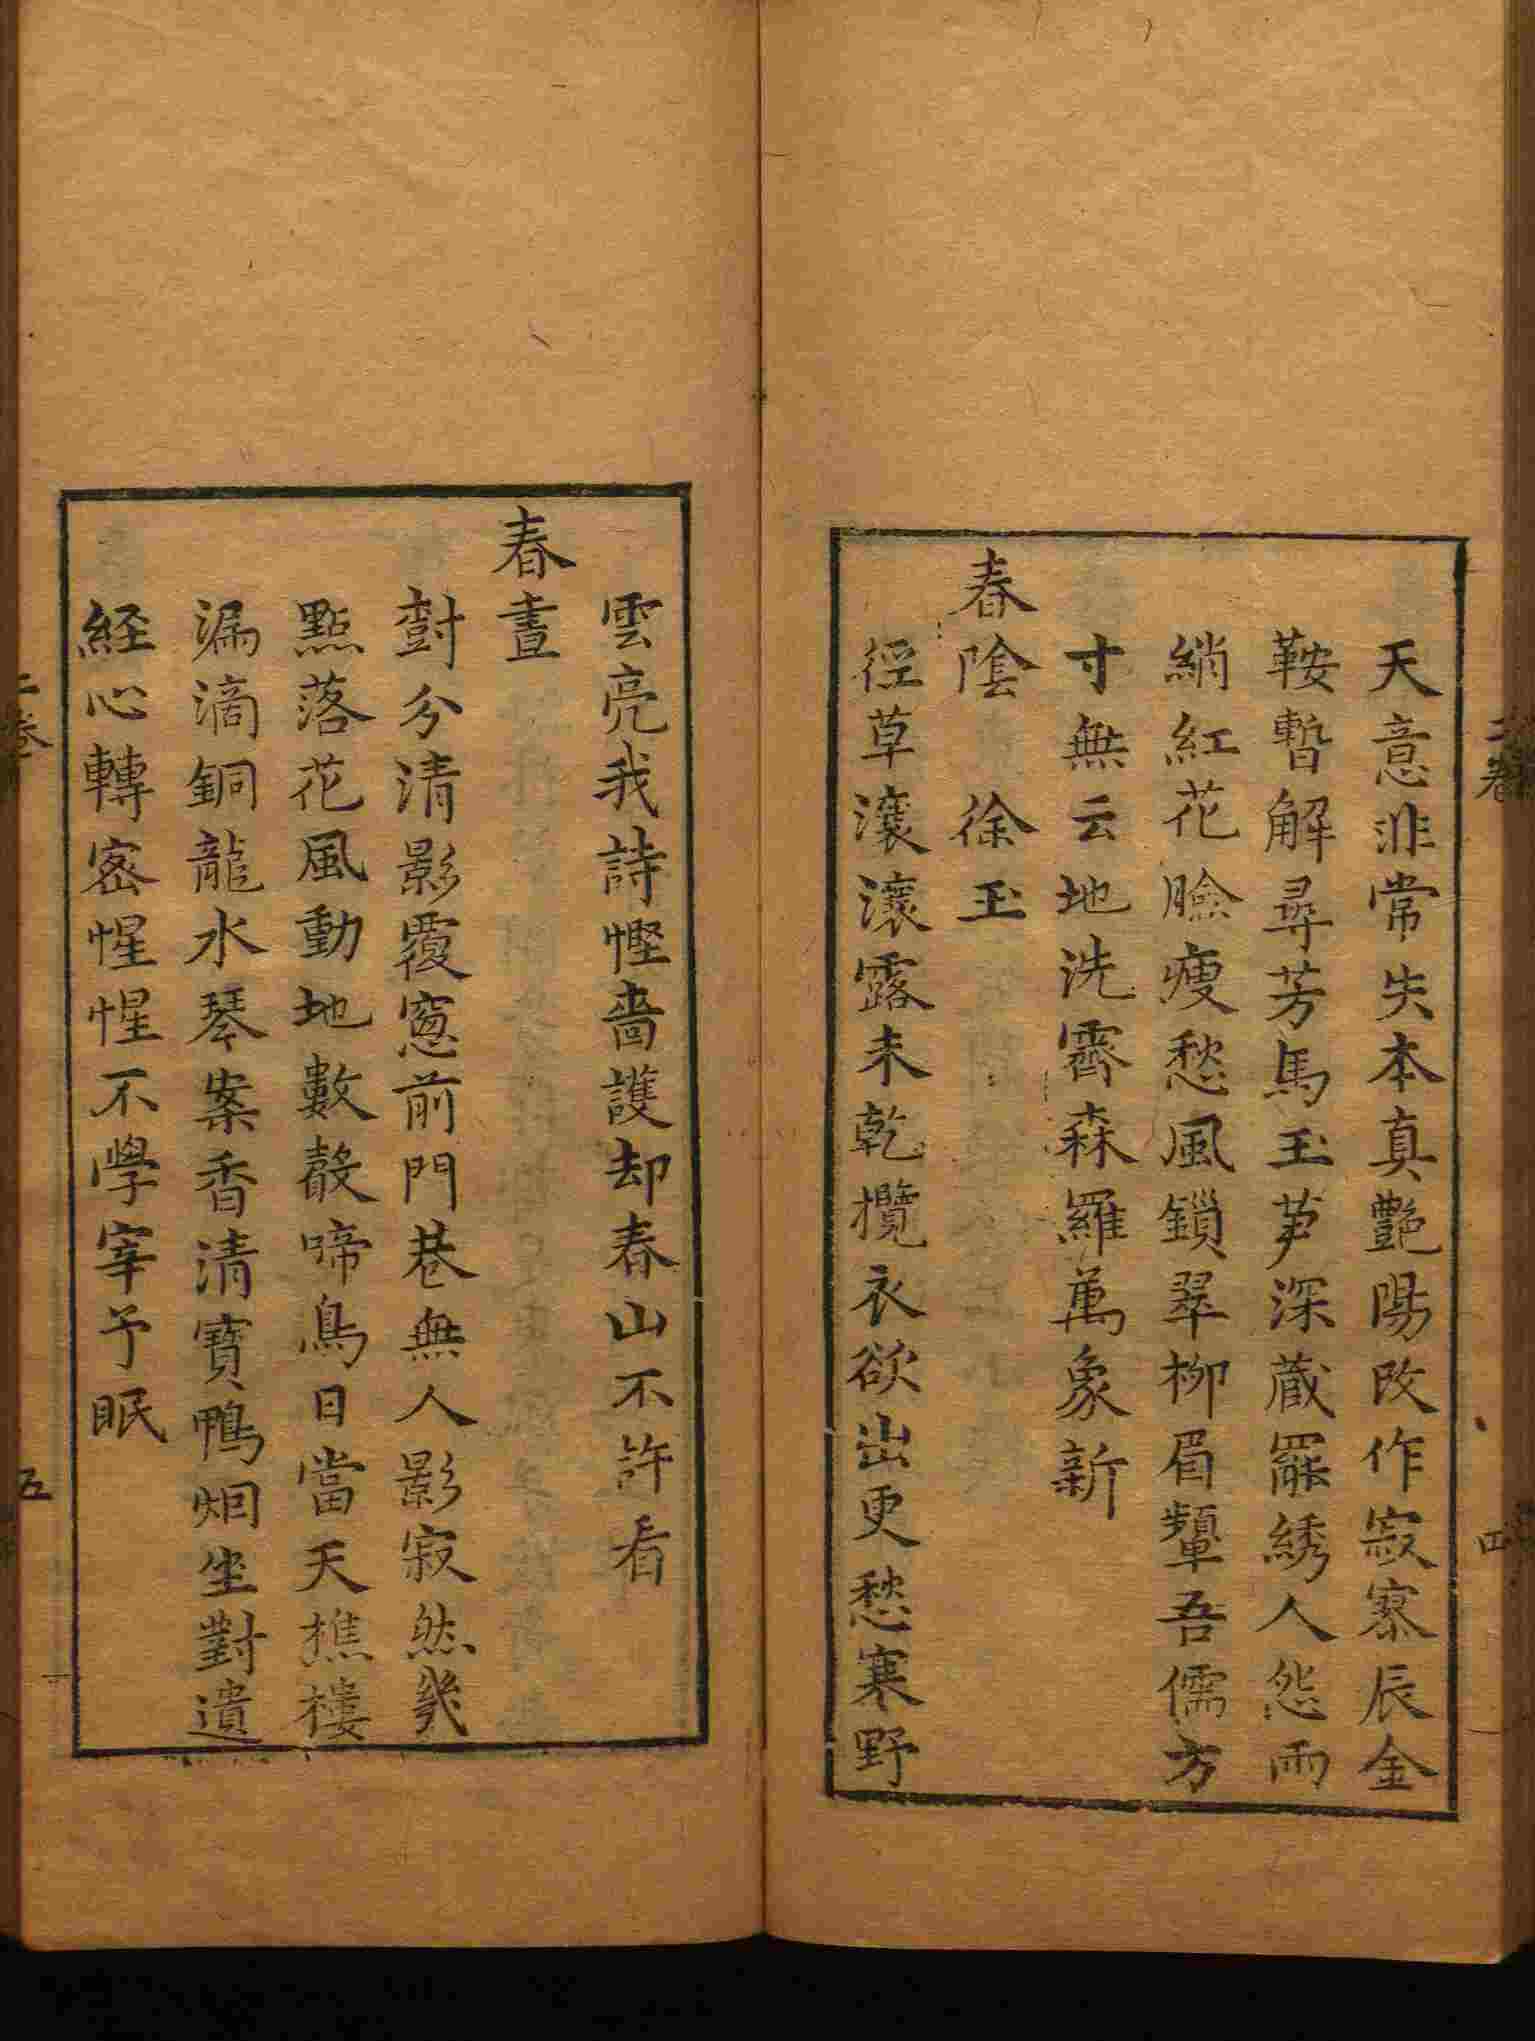 天意非常失本真艷陽改作寂寥辰金
鞍暫解尋芳馬玉笋深藏罷綉人怨雨
綃紅花臉瘦愁風鎖翠柳眉顰吾儒方
寸無云地洗霽森羅萬象新
春陰　徐玉
徑草瀼瀼露未乾攬衣欲出更愁寒野
雲亮我詩慳嗇護却春山不許看
春晝
對分清影覆窓前門巷無人影寂然幾
點落花風動地數聲啼鳥日當天樵樓
漏滴銅龍水琴案香清寶鴨烟坐對遺
経心轉密惺惺不學宰予眠
二卷
四
二卷
五